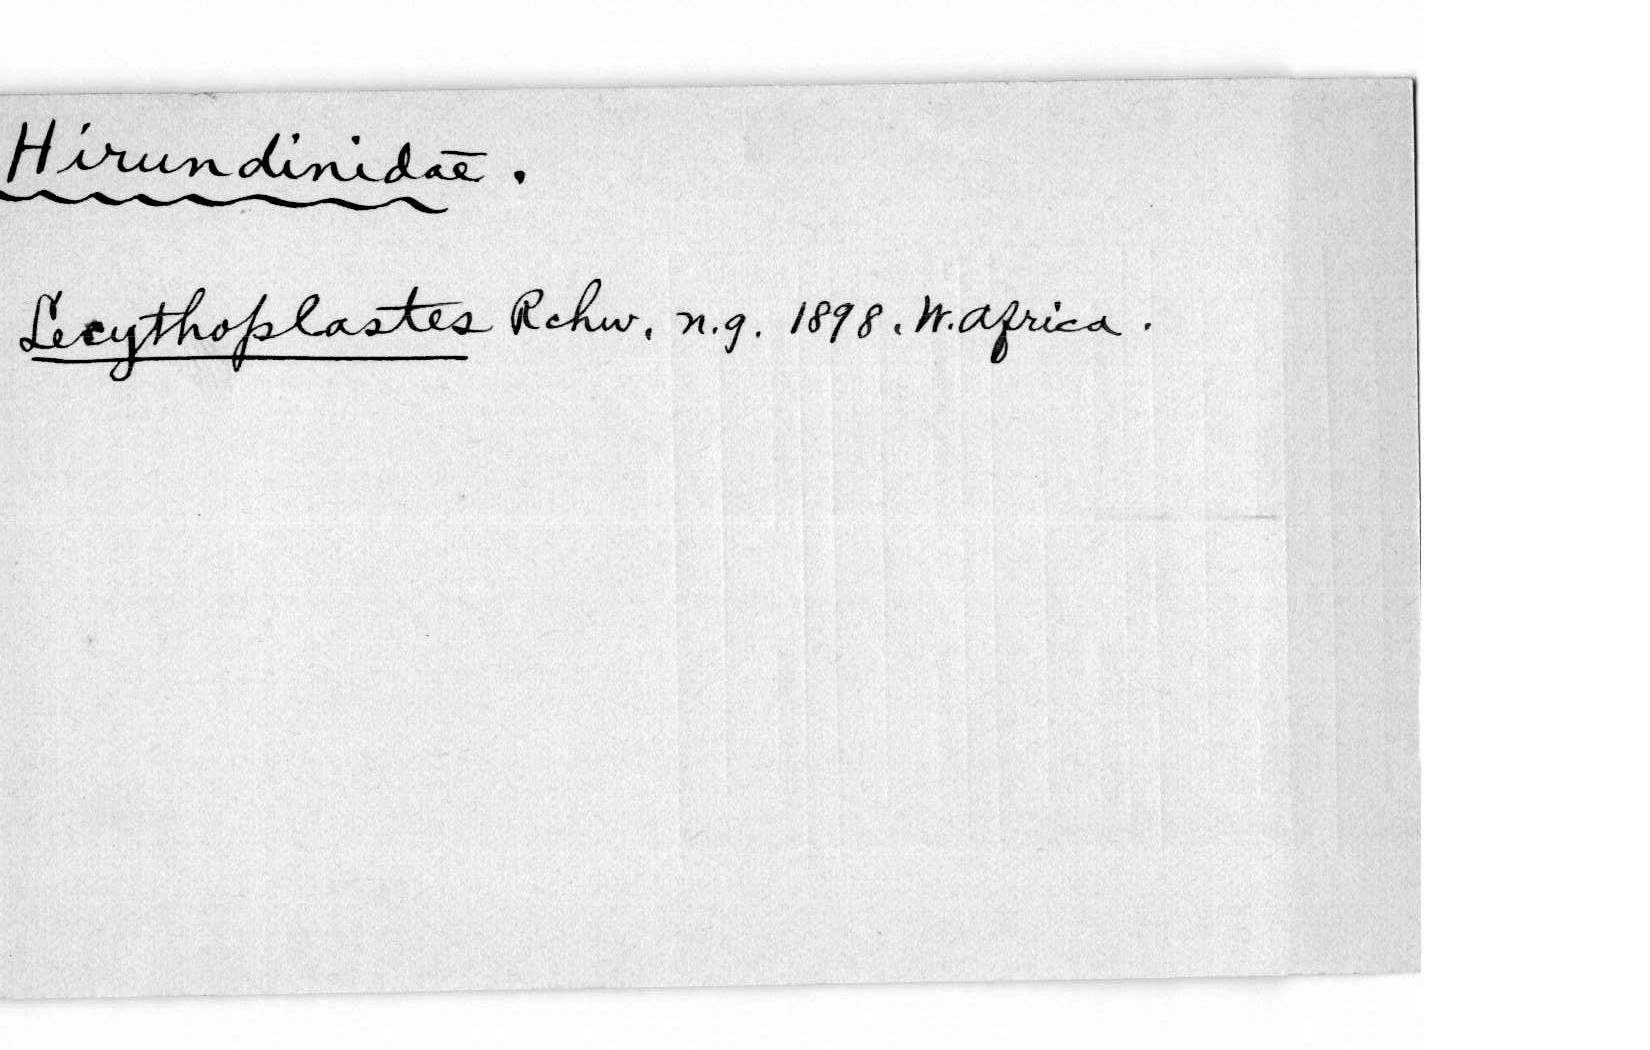 Hirundinidae.
Lecythoplastes Rchw. n.g. 1898. W. Africa.